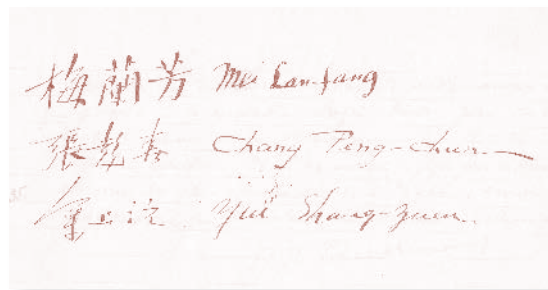 梅蘭芳 Mei Lan-fang
張彭春 Chang Peng-chun
余上沅 Shang-yuen